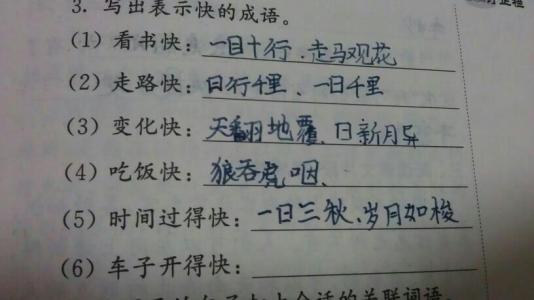 3. 写出表示快的成语。
(1) 看书快：一目十行、走马观花
(2) 走路快：日行千里、一日千里
(3) 变化快：天翻地覆、日新月异
(4) 吃饭快：狼吞虎咽、
(5) 时间过得快：一日三秋、岁月如梭
(6) 车子开得快：